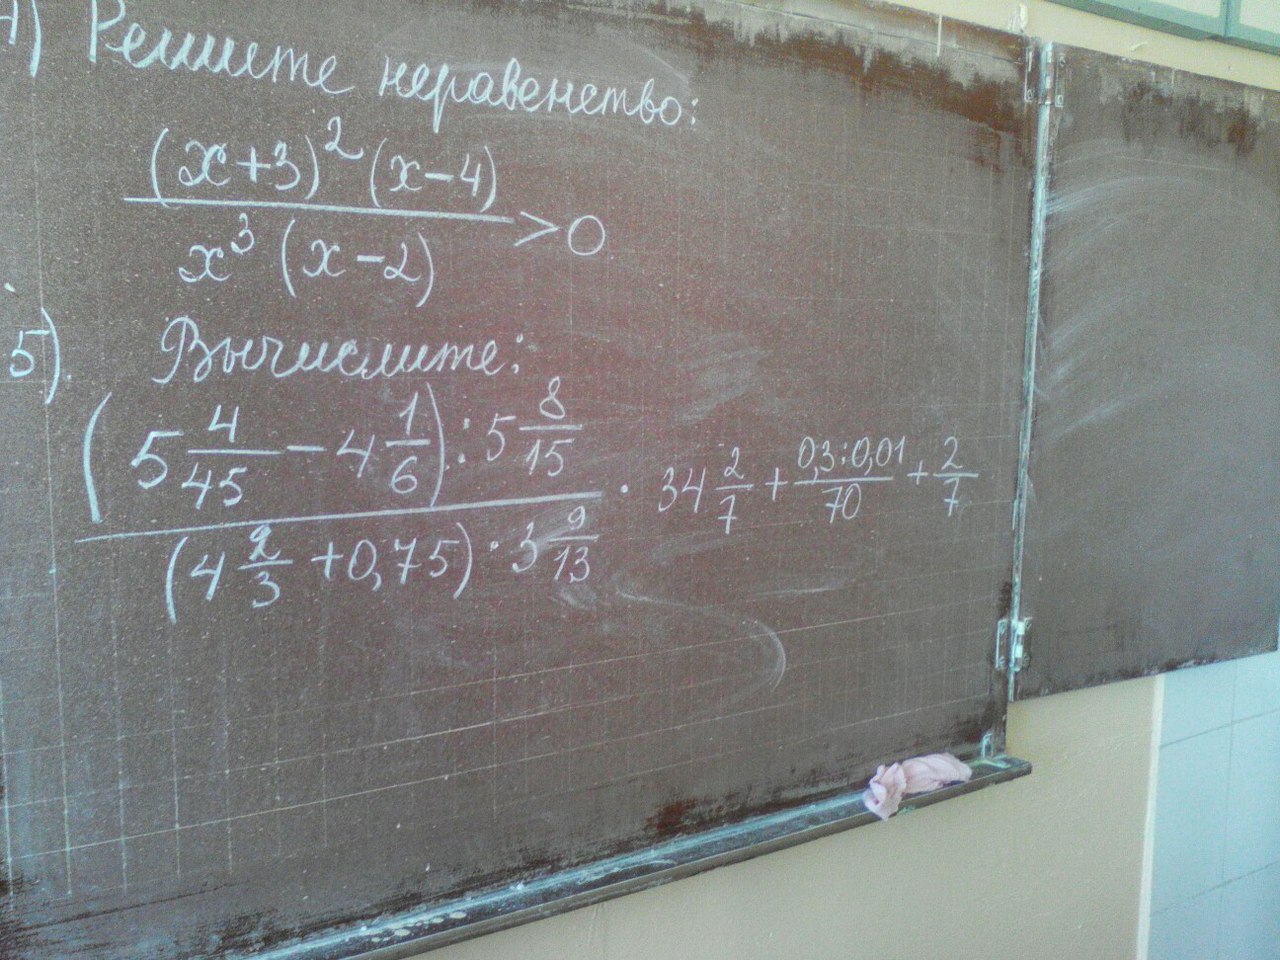 4) Решите неравенство:
(x+3)² (x-4)
x³ (x-2) >0
5). Вычислите:
(5 4/45 - 4 1/6) : 5 8/15
(4 2/3 + 0,75) · 3 9/13 · 34 2/7 + 0,3:0,01/70 + 2/7